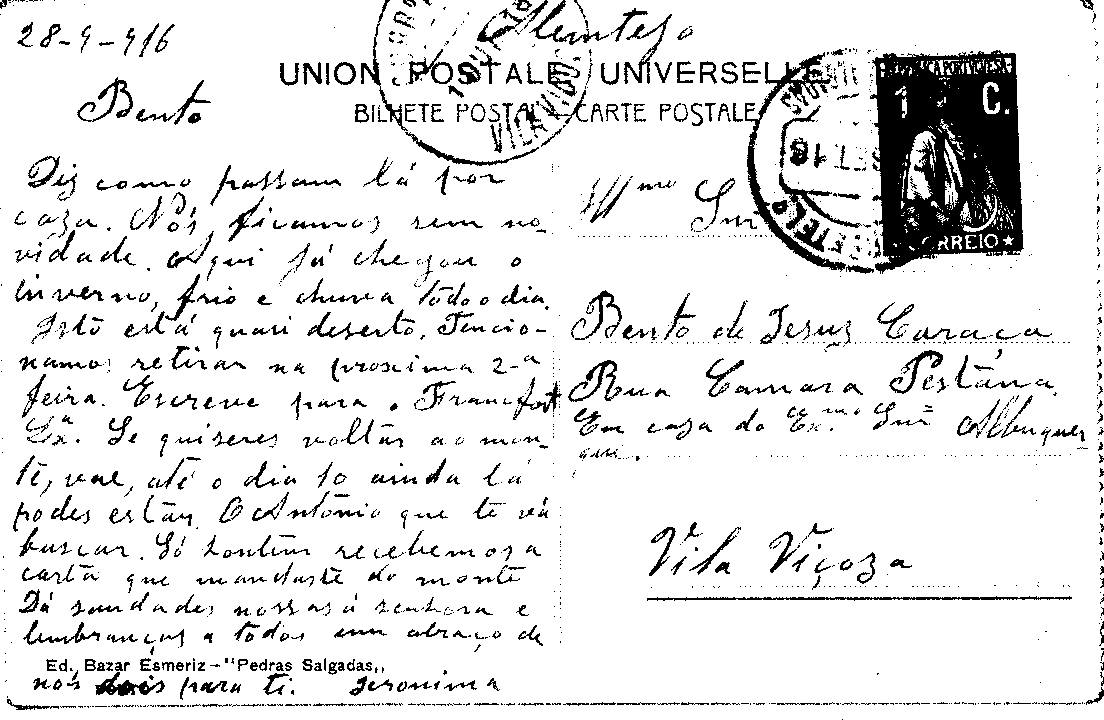 28-9-916
Alemtejo
UNION POSTALE UNIVERSELLE
BILHETE POSTAL - CARTE POSTALE
VILA VIÇOSA
REPUBLICA PORTUGUESA
1 C.
CORREIO
Bento
Diz como passam lá por
caza. Nós, ficamos sem no-
vidade. Aqui já chegou o
inverno, frio e chuva todo o dia.
Isto está quasi deserto. Tencio-
namos retirar na proxima 2ª
feira. Escreve para o Francfort
Lxª. Se quiseres voltar ao mon-
te, vae, até o dia 10 ainda lá
podes estar. O António que te vá
buscar. Só hontem recebemos a
carta que mandaste do monte
Dá saudades nossas á senhora e
lembranças a todos um abraço de
Ed. Bazar Esmeriz - "Pedras Salgadas,,
nós dois para ti. Jeronima
Illmo Snr
Bento de Jesus Caraça
Rua Camara Pestana
Em caza do Exmo Snr Albuquer
que.
Vila Viçoza